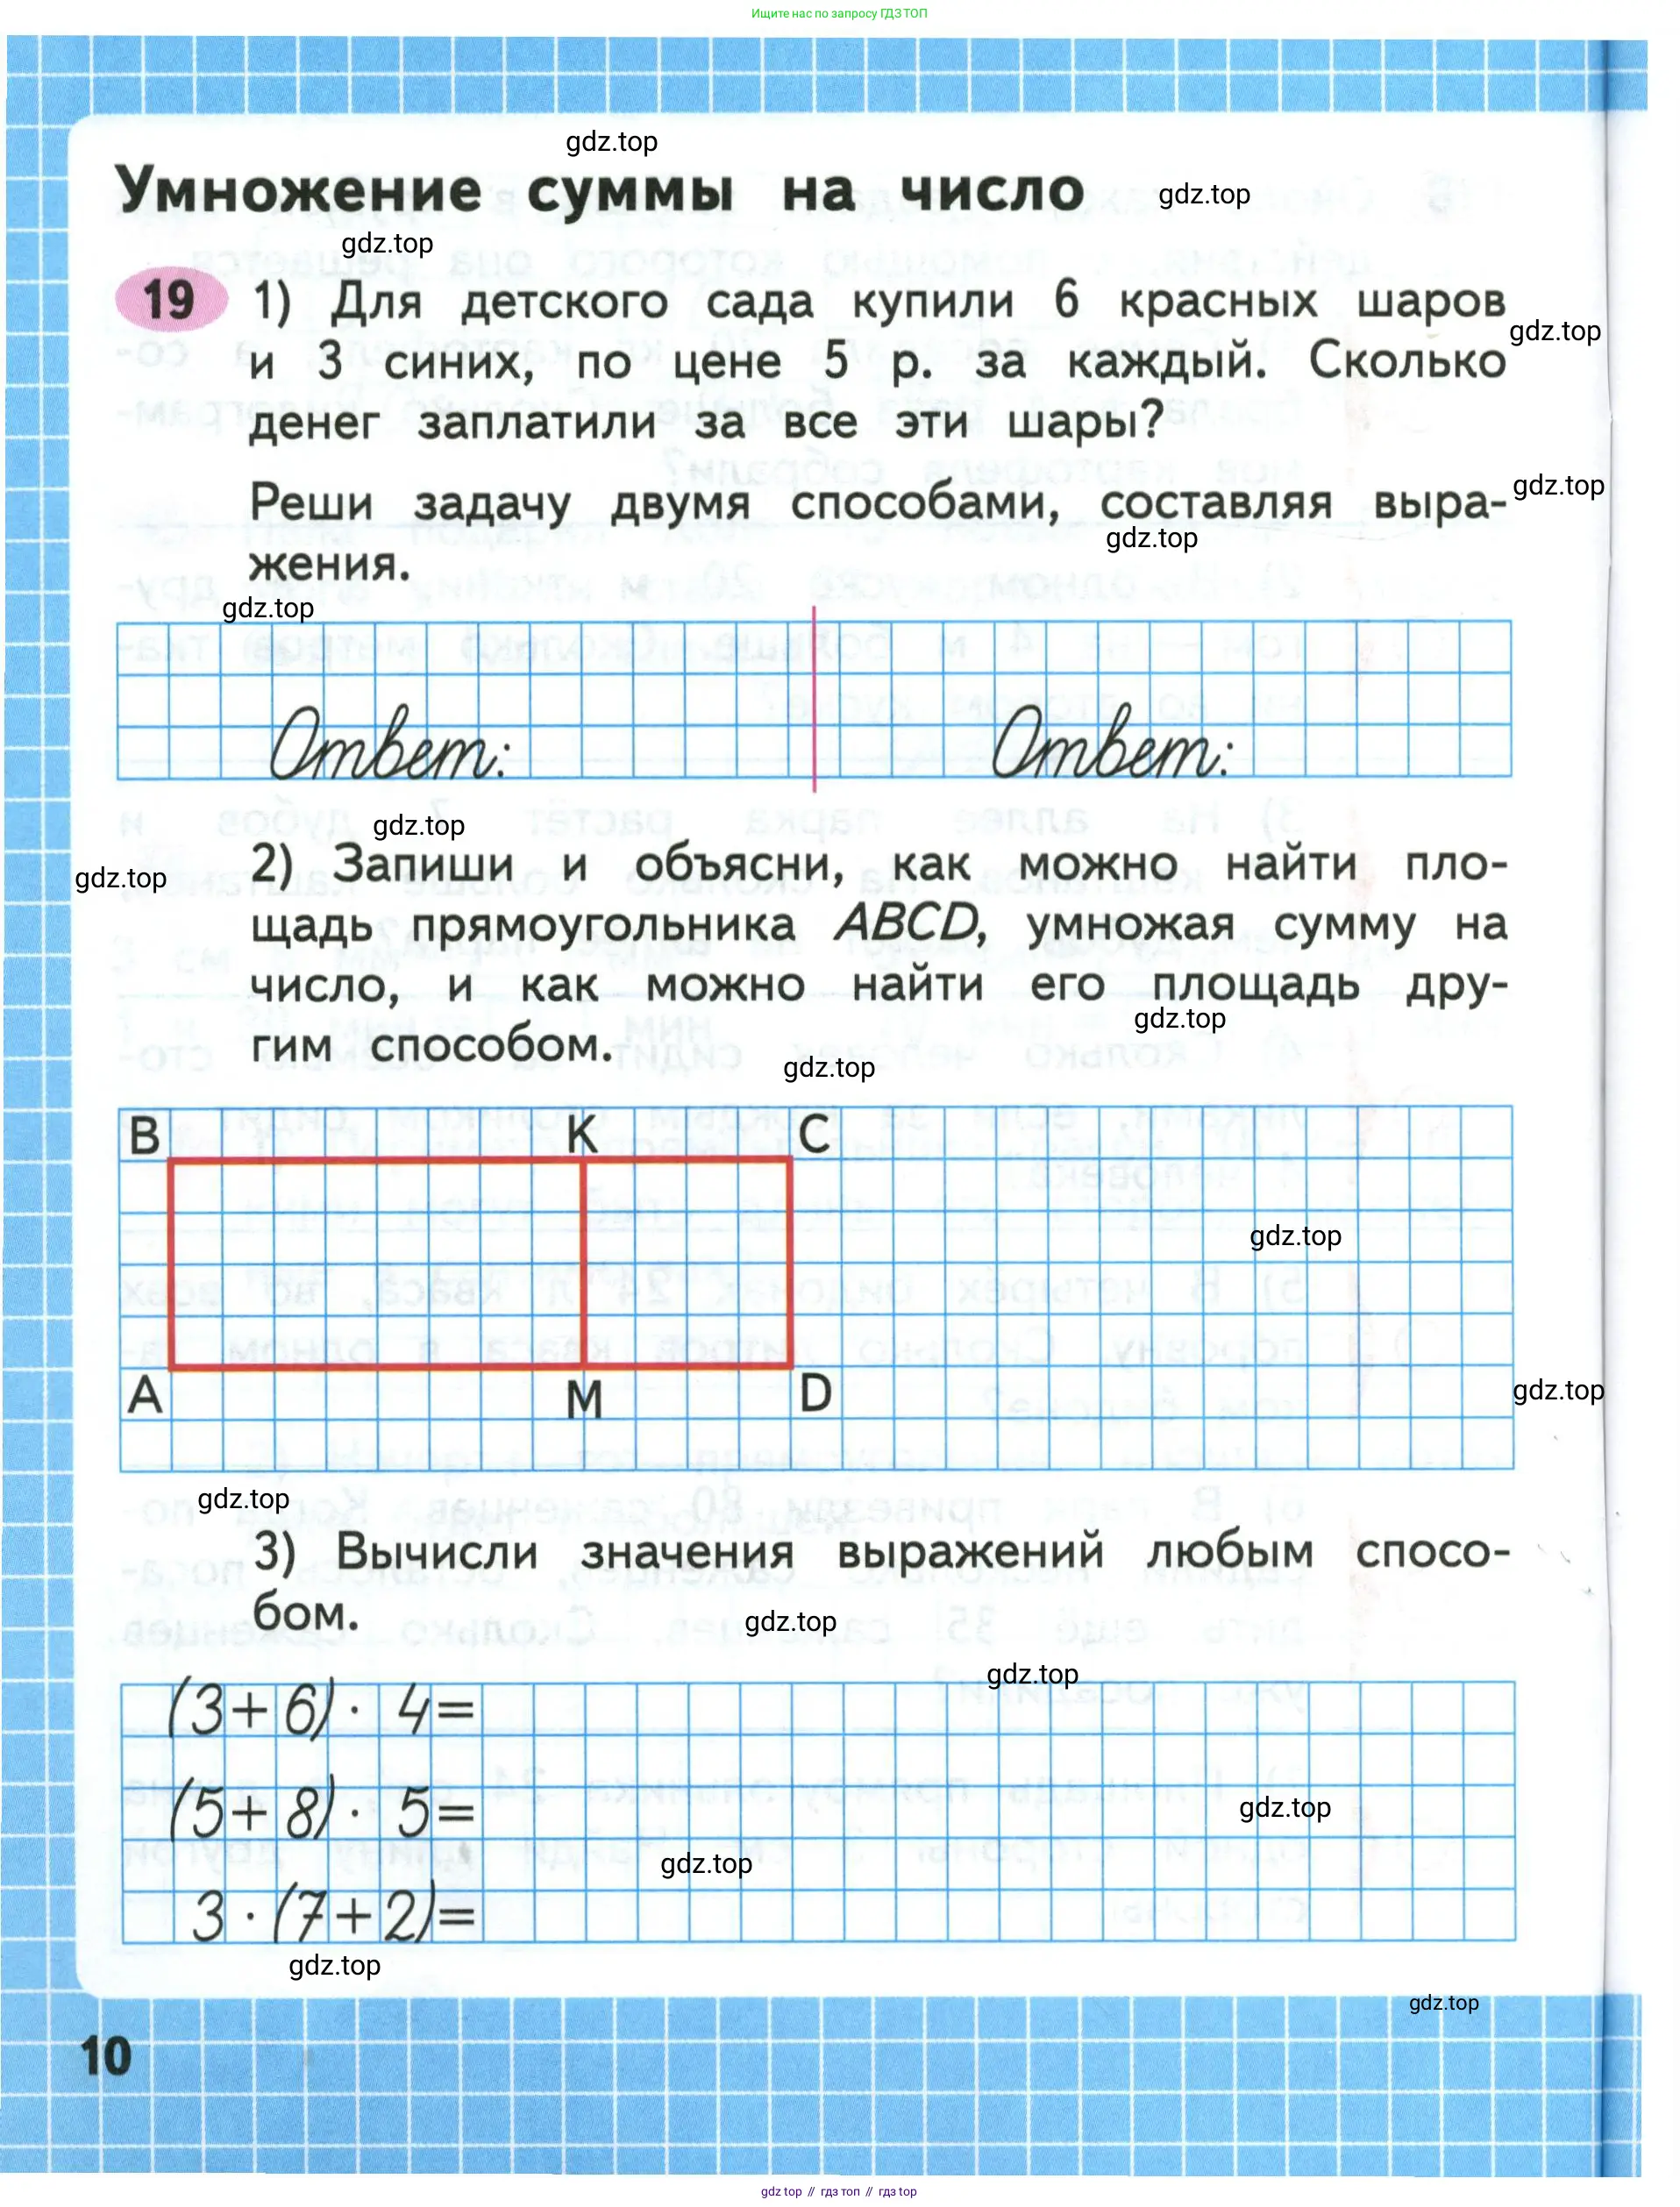 Ищите нас по запросу ГДЗ ТОП
gdz.top
Умножение суммы на число gdz.top
gdz.top
19 1) Для детского сада купили 6 красных шаров
gdz.top
и 3 синих, по цене 5 р. за каждый. Сколько
денег заплатили за все эти шары?
gdz.top
Реши задачу двумя способами, составляя выра-
gdz.top
жения.
gdz.top
Ответ: Ответ:
gdz.top
2) Запиши и объясни, как можно найти пло-
gdz.top
щадь прямоугольника ABCD, умножая сумму на
число, и как можно найти его площадь дру-
gdz.top
гим способом.
gdz.top
B K C
gdz.top
A M D
gdz.top
gdz.top
3) Вычисли значения выражений любым спосо-
бом.
gdz.top
gdz.top
(3+6) · 4=
(5+8) · 5=
gdz.top
gdz.top
3 · (7+2)=
gdz.top
gdz.top
10
gdz top // гдз топ // гдз top